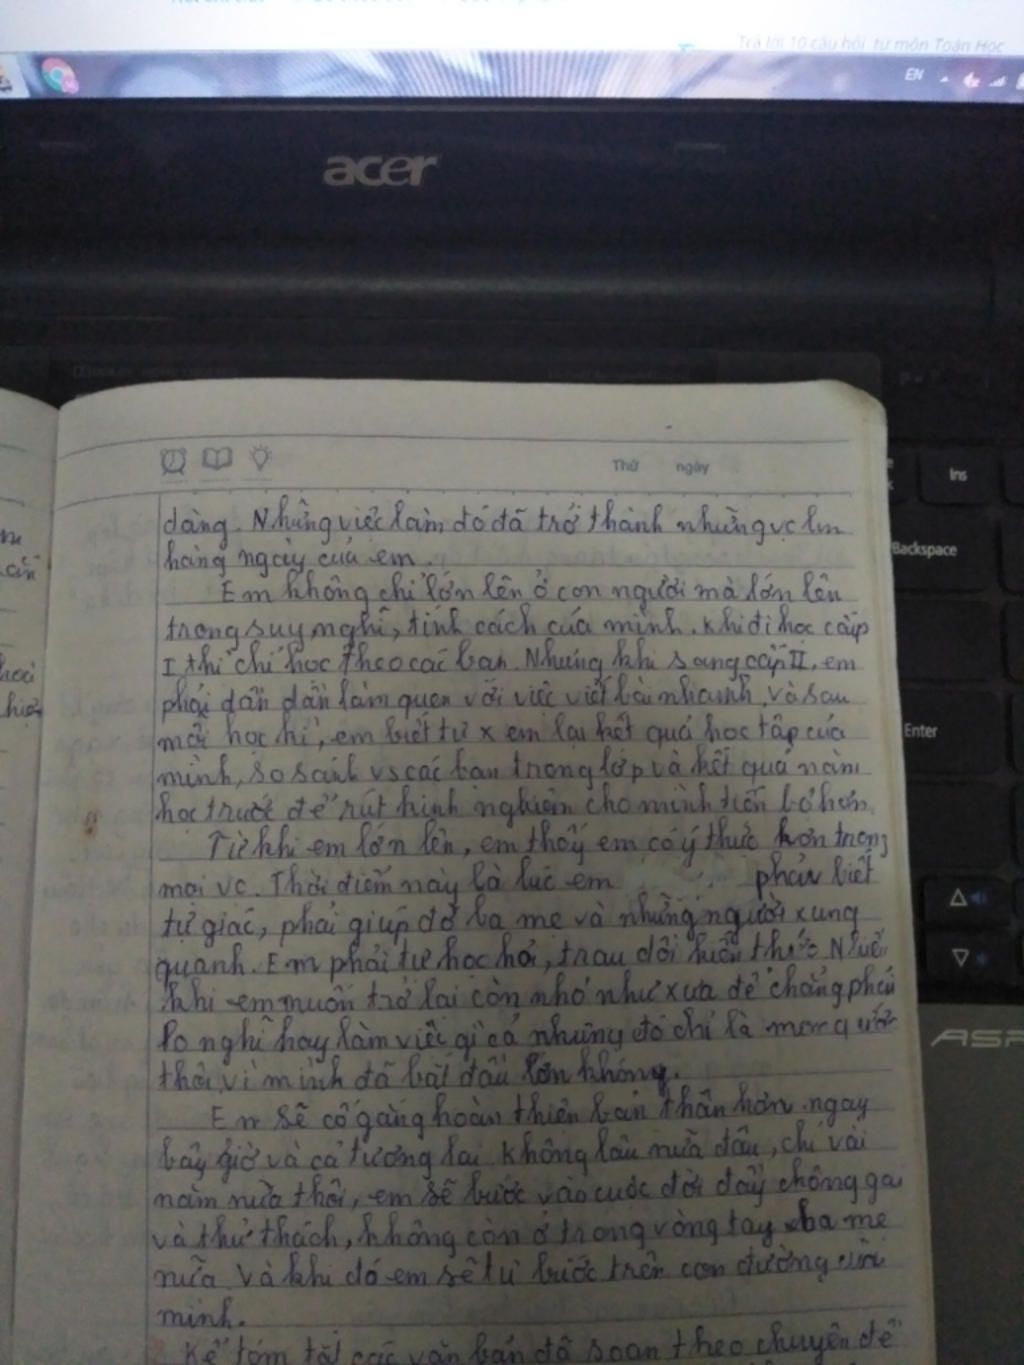 Trả lời 10 câu hỏi từ môn Toán Học
EN
acer
Thứ ngày
Ins
Backspace
Enter
ASP
dàng. Những việc làm đó đã trở thành những vc lm
hàng ngày của em.
Em không chỉ lớn lên ở con người mà lớn lên
trong suy nghĩ, tính cách của mình. Khi đi học cấp
I thì chỉ học theo các bạn. Nhưng khi sang cấp II, em
phải dần dần làm quen với việc viết bài nhanh, và sau
mỗi học kì, em biết tự xem lại kết quả học tập của
mình, so sánh vs các bạn trong lớp và kết quả năm
học trước để rút kinh nghiệm cho mình tiến bộ hơn.
Từ khi em lớn lên, em thấy em có ý thức hơn trong
mọi vc. Thời điểm này là lúc em phải biết
tự giác, phải giúp đỡ ba mẹ và những người xung
quanh. Em phải tự học hỏi, trau dồi kiến thức. Nhiều
khi em muốn trở lại còn nhỏ như xưa để chẳng phải
lo nghĩ hay làm việc gì cả nhưng đó chỉ là mong ước
thôi vì mình đã bắt đầu lớn
Em sẽ cố gắng hoàn thiện bản thân hơn ngay
bây giờ và cả tương lai. Không lâu nữa đâu, chỉ vài
năm nữa thôi, em sẽ bước vào cuộc đời đầy chông gai
và thử thách, không còn ở trong vòng tay ba mẹ
nữa. Và khi đó em sẽ tự bước trên con đường của
mình.
Kể tóm tắt các văn bản đã soạn theo chuyên đề